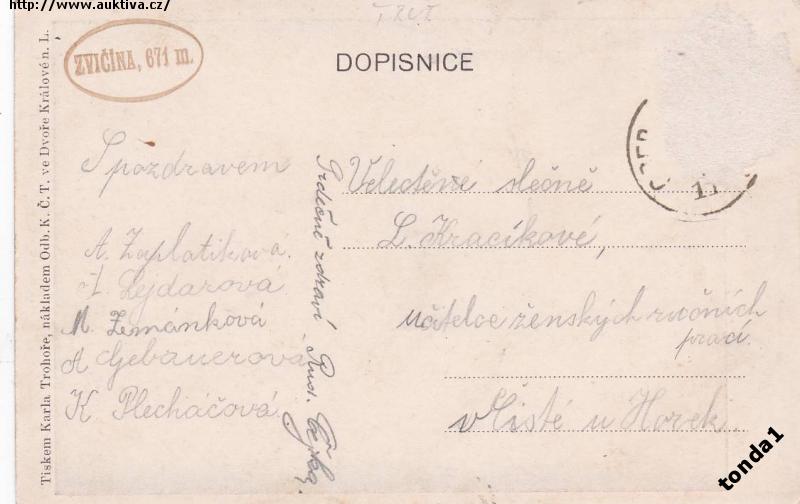 http://www.auktiva.cz/
ZVIČÍNA, 671 m.
DOPISNICE
Tiskem Karla Trohoře, nákladem Odb. K. Č. T. ve Dvoře Králové n. L.
S pozdravem
A. Zaplatiková.
Lejdarová
M. Zemánková
A Gebauerová
K Plecháčová
Srdečně zdraví Rud.
Velectěné slečně
L. Kracíkové,
učitelce ženských ručních
prací
v Čisté u Horek.
11
tonda1